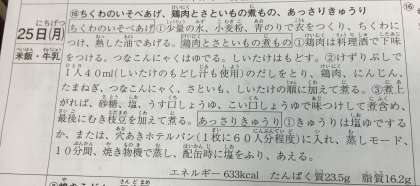 ⑯ちくわのいそべあげ、鶏肉とさといもの煮もの、あっさりきゅうり
にちげつ
25日(月)
米飯・牛乳
ちくわのいそべあげ①少量の水、小麦粉、青のりで衣をつくり、ちくわに
つけ、熱した油であげる。鶏肉とさといもの煮もの①鶏肉は料理酒で下味
をつける。つなこんにゃくはゆでる。しいたけはもどす。②けずりぶしで
1人40ml(しいたけのもどし汁も使用)のだしをとり、鶏肉、にんじん、
たまねぎ、つなこんにゃく、さといも、しいたけの順に加えて煮る。③煮上
がれば、砂糖、塩、うす口しょうゆ、こい口しょうゆで味つけして煮含め、
最後にむき枝豆を加えて煮る。あっさりきゅうり①きゅうりは塩ゆでする
か、または、穴あきホテルパン(1枚に60人分程度)に入れ、蒸しモード、
10分間、焼き物機で蒸し、配缶時に塩をふり、あえる。
エネルギー633kcal たんぱく質23.5g 脂質16.2g
⑯